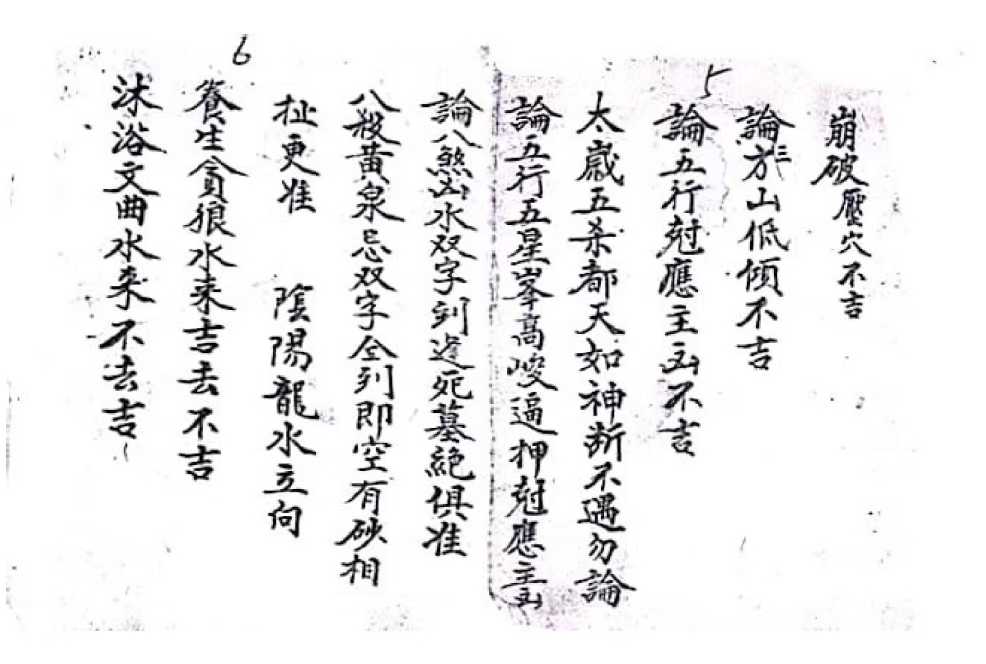 5
崩破壓穴不吉
論三方山低傾不吉
論五行尅應主凶不吉
太歲五杀都天如神断不遇勿論
論五行五星峯高峻逼押尅應主凶
6
論八煞凶水双字到逢死墓絕俱准
八殺黃泉忌双字全到即空有砂相
扯更准 陰陽龍水立向
養生貪狼水来吉去不吉
沐浴文曲水来不去吉